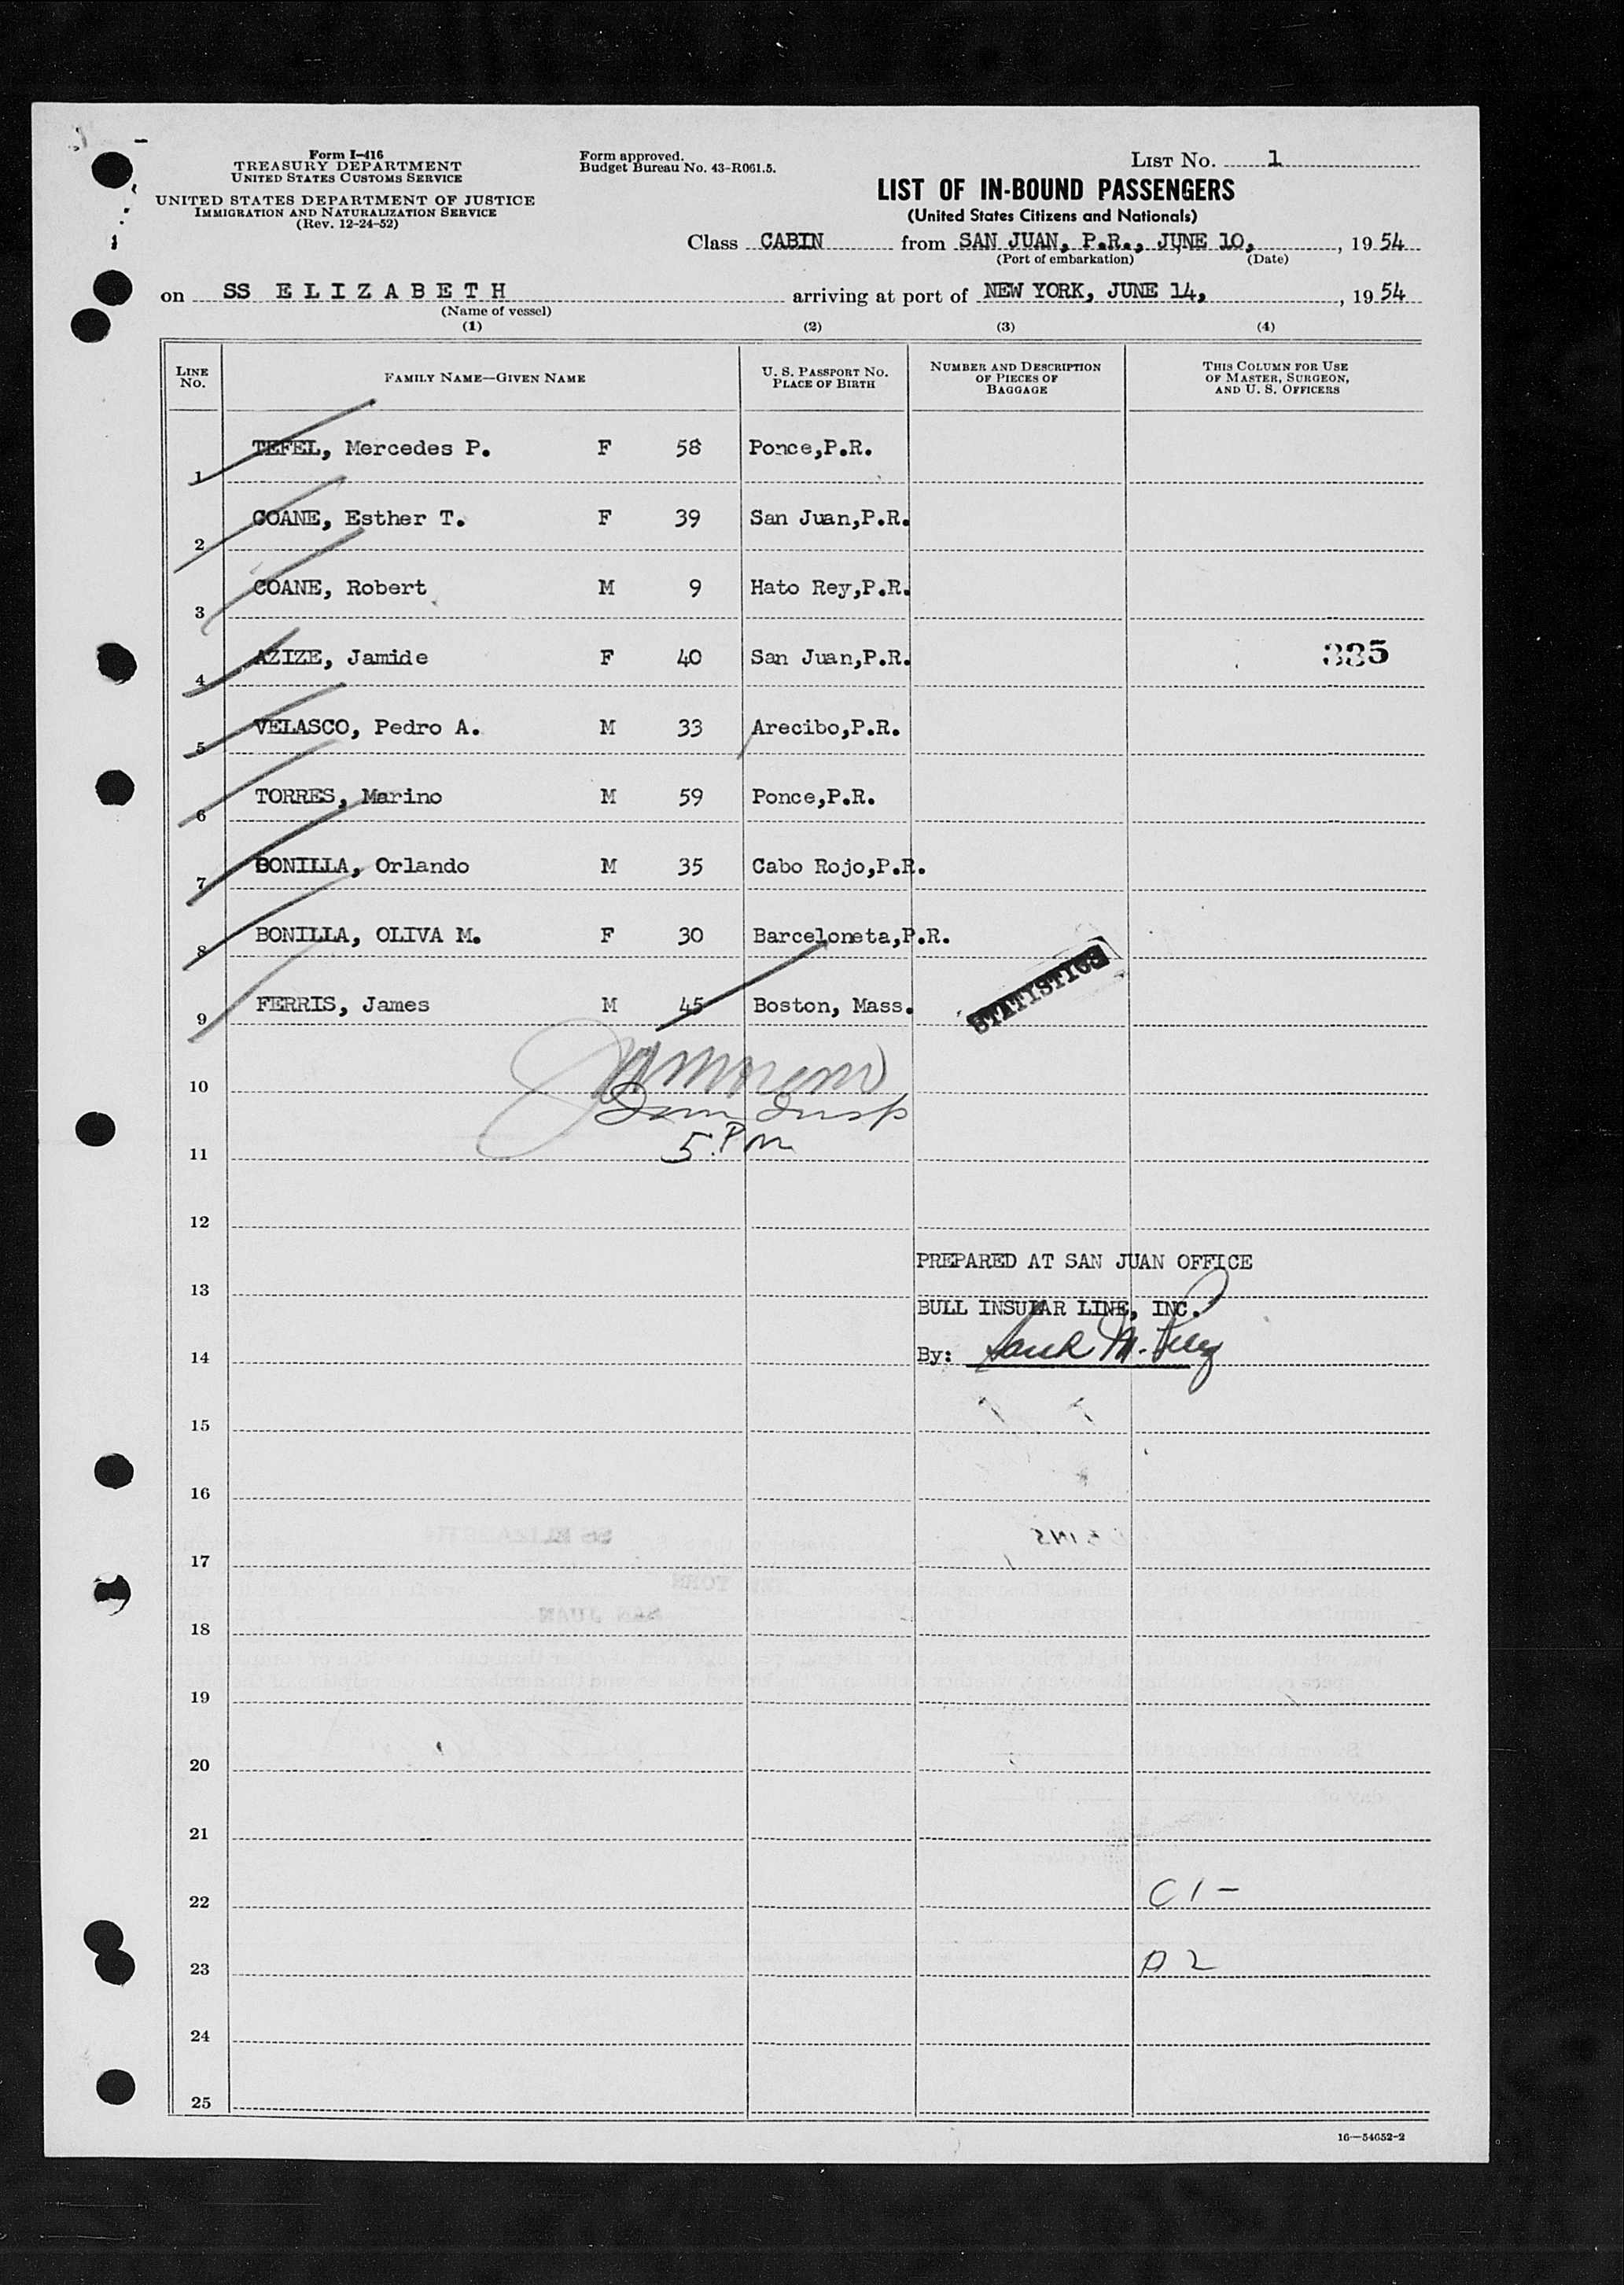 Form I-416
TREASURY DEPARTMENT
UNITED STATES CUSTOMS SERVICE
UNITED STATES DEPARTMENT OF JUSTICE
IMMIGRATION AND NATURALIZATION SERVICE
(Rev. 12-24-52)
Form approved.
Budget Bureau No. 43-R061.5.
LIST NO. 1
LIST OF IN-BOUND PASSENGERS
(United States Citizens and Nationals)
Class CABIN from SAN JUAN, P.R., JUNE 10, , 1954
(Port of embarkation) (Date)
on SS ELIZABETH arriving at port of NEW YORK, JUNE 14, , 1954
(Name of vessel)
(1) (2) (3) (4)
LINE NO. FAMILY NAME—GIVEN NAME U. S. PASSPORT NO. PLACE OF BIRTH NUMBER AND DESCRIPTION OF PIECES OF BAGGAGE THIS COLUMN FOR USE OF MASTER, SURGEON, AND U. S. OFFICERS
1 TEFEL, Mercedes P. F 58 Ponce,P.R.
2 COANE, Esther T. F 39 San Juan,P.R.
3 COANE, Robert M 9 Hato Rey,P.R.
4 AZIZE, Jamide F 40 San Juan,P.R. 335
5 VELASCO, Pedro A. M 33 Arecibo,P.R.
6 TORRES, Marino M 59 Ponce,P.R.
7 BONILLA, Orlando M 35 Cabo Rojo,P.R.
8 BONILLA, OLIVA M. F 30 Barceloneta,P.R.
STATISTICS
9 FERRIS, James M 45 Boston, Mass.
10
Insp
5 PM
11
12
PREPARED AT SAN JUAN OFFICE
13
BULL INSULAR LINE, INC.
14 By:
15
16
17
18
19
20
21
22 C1-
23 A2
24
25
16—54652-2